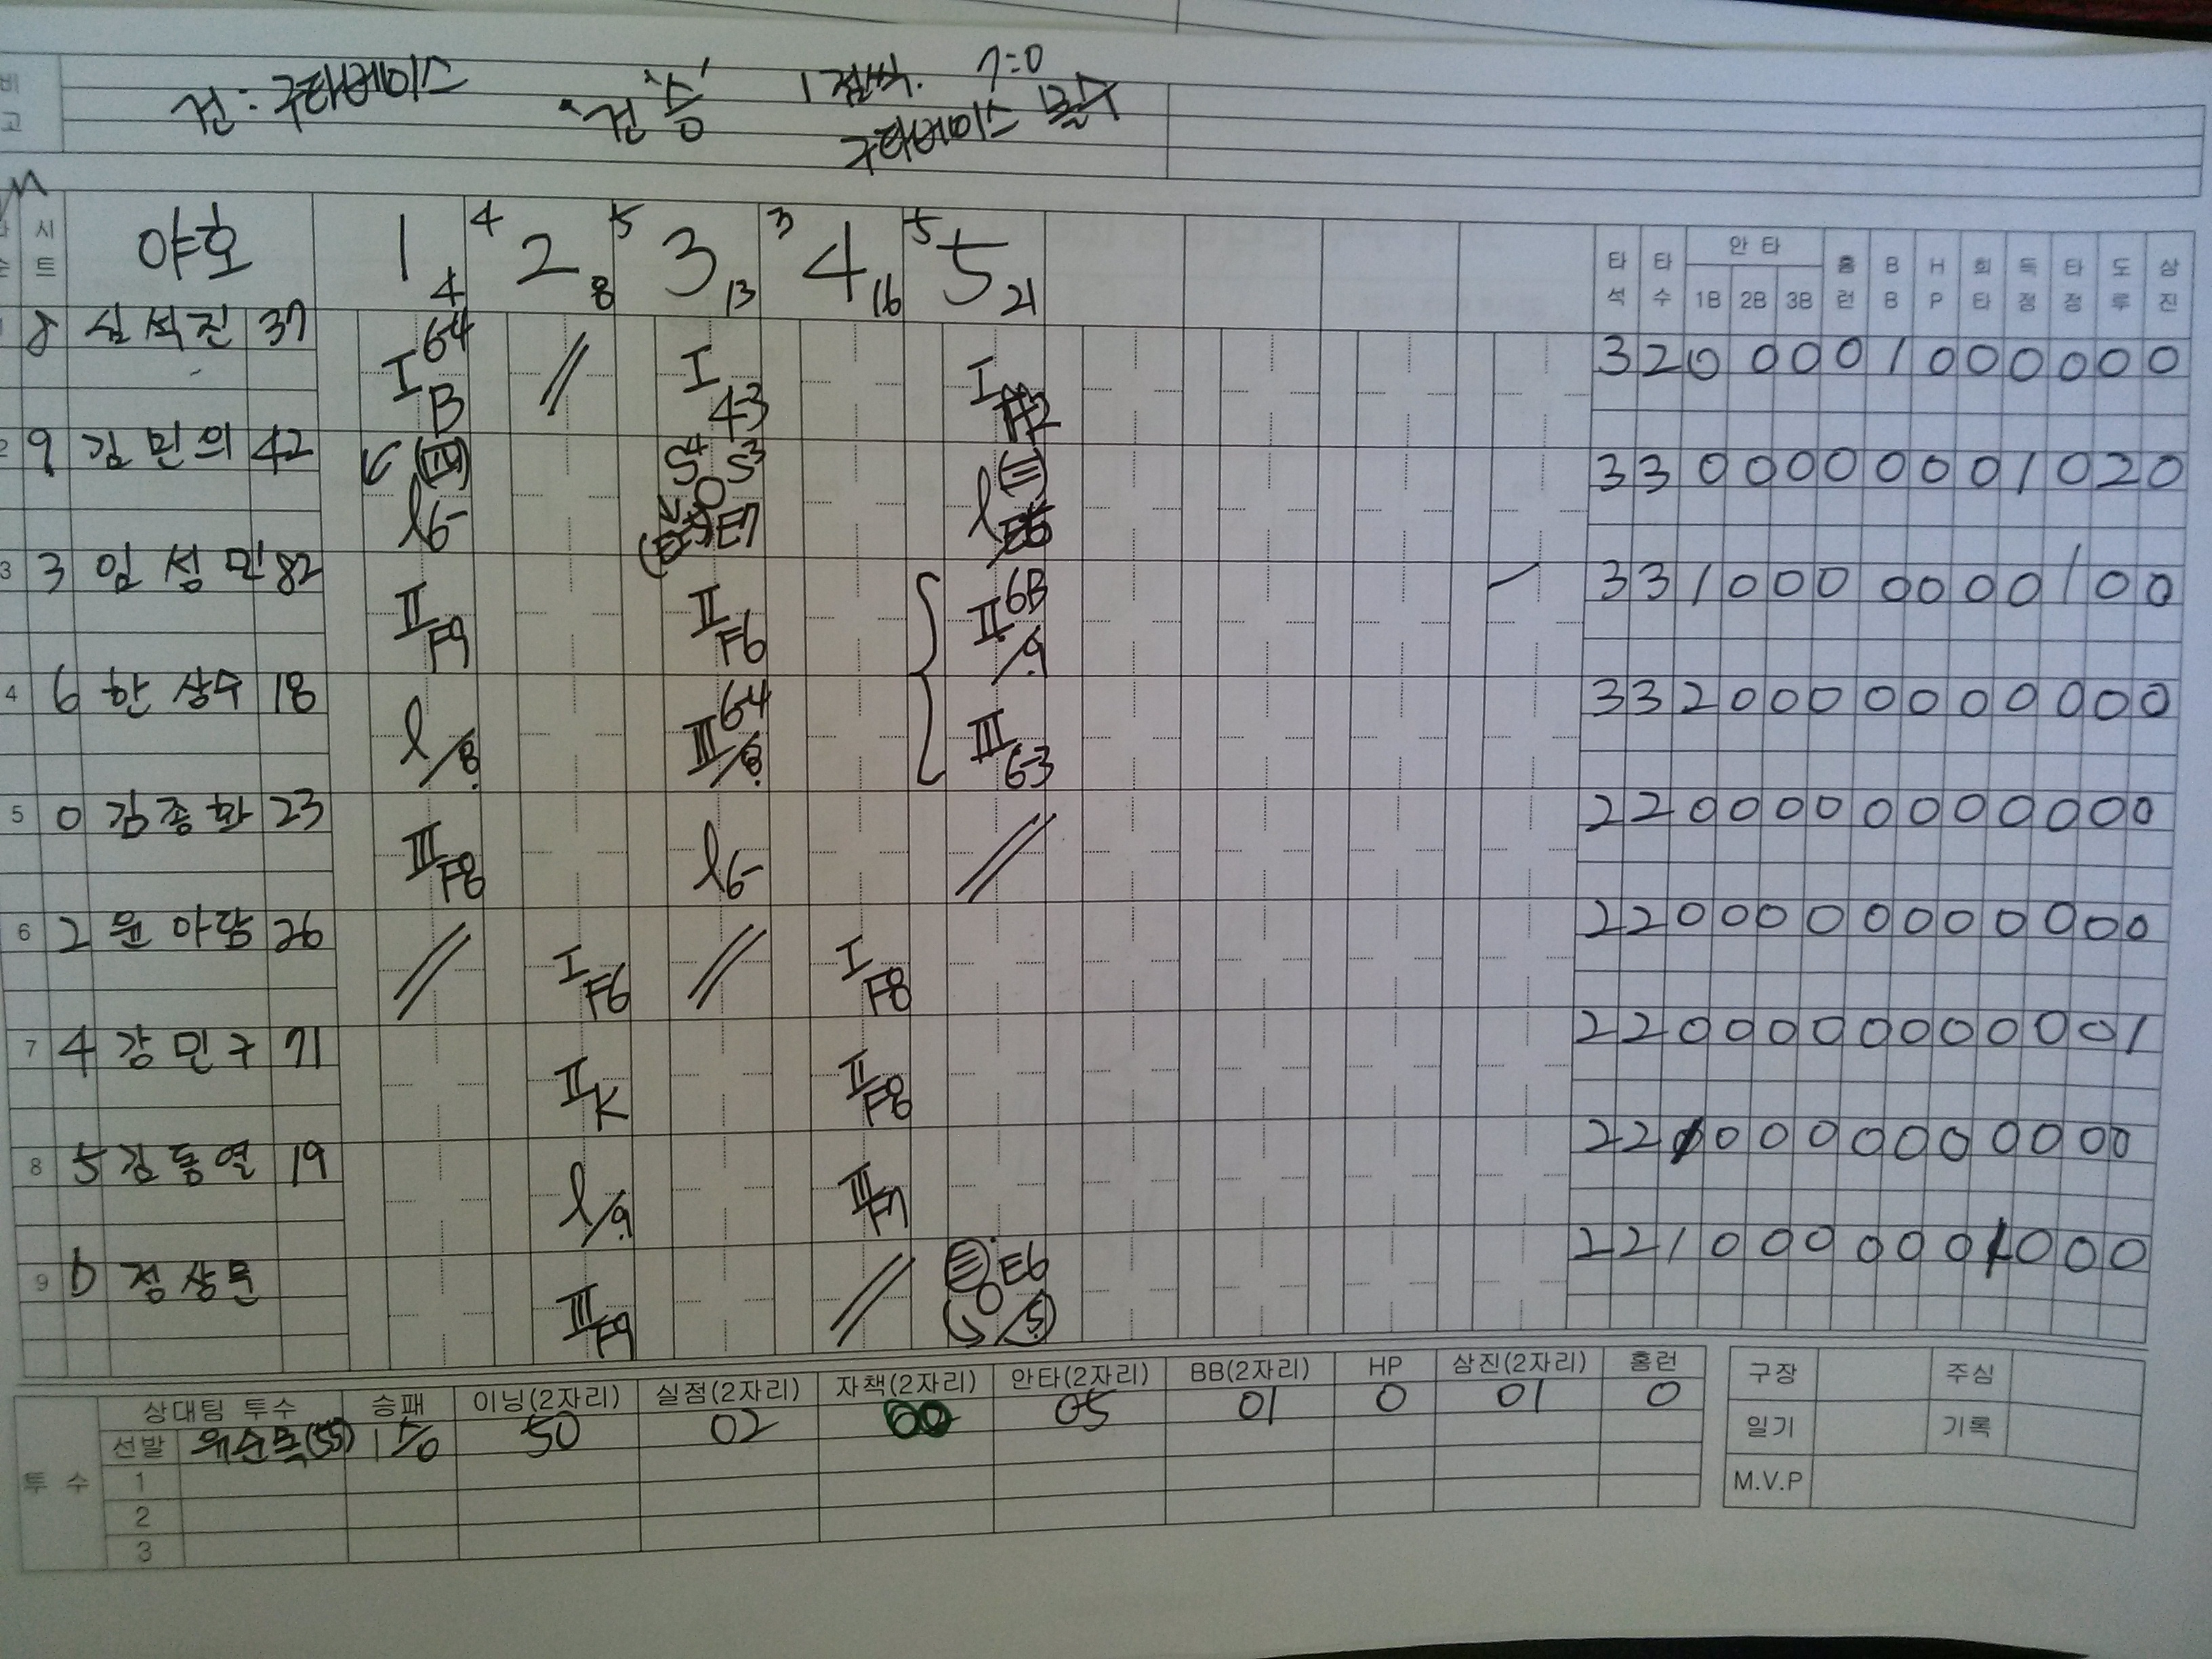 비고
건 : 구타베이스 "건승" 1 점씩. 7:0
구타베이스
시트 야호 1 4 4 2 8 5 3 13 3 4 16 5 5 21 타석 타수 안 타 1B 2B 3B 홈런 BB HP 희타 득점 타점 도루 삼진
1 8 심 석 진 37 I 64 B // I 4-3 I 3 2 0 0 0 0 1 0 0 0 0 0 0
2 9 김 민 의 42 l 6- S4 S3 E7 l 3 3 0 0 0 0 0 0 0 1 0 2 0
3 3 임 섬 민 82 II F9 II F6 II 6B /9 3 3 1 0 0 0 0 0 0 0 1 0 0
4 6 한 상 수 18 l /8 III 6-4 /8 III 6-3 3 3 2 0 0 0 0 0 0 0 0 0 0
5 0 김 종 환 23 III F8 l 6- // 2 2 0 0 0 0 0 0 0 0 0 0 0
6 2 윤 아 담 26 // I F6 // I F8 2 2 0 0 0 0 0 0 0 0 0 0 0
7 4 강 민 구 71 II K II F8 2 2 0 0 0 0 0 0 0 0 0 0 1
8 5 김 동 열 19 l /9 III F7 2 2 1 0 0 0 0 0 0 0 0 0 0
9 D 정 상 문 III F9 // E6 /5 2 2 1 0 0 0 0 0 0 1 0 0 0
상대팀 투수 승패 이닝(2자리) 실점(2자리) 자책(2자리) 안타(2자리) BB(2자리) HP 삼진(2자리) 홈런 구장 주심
투 수 선발 (55) 50 02 00 05 01 0 01 0 일기 기록
1 M.V.P
2
3